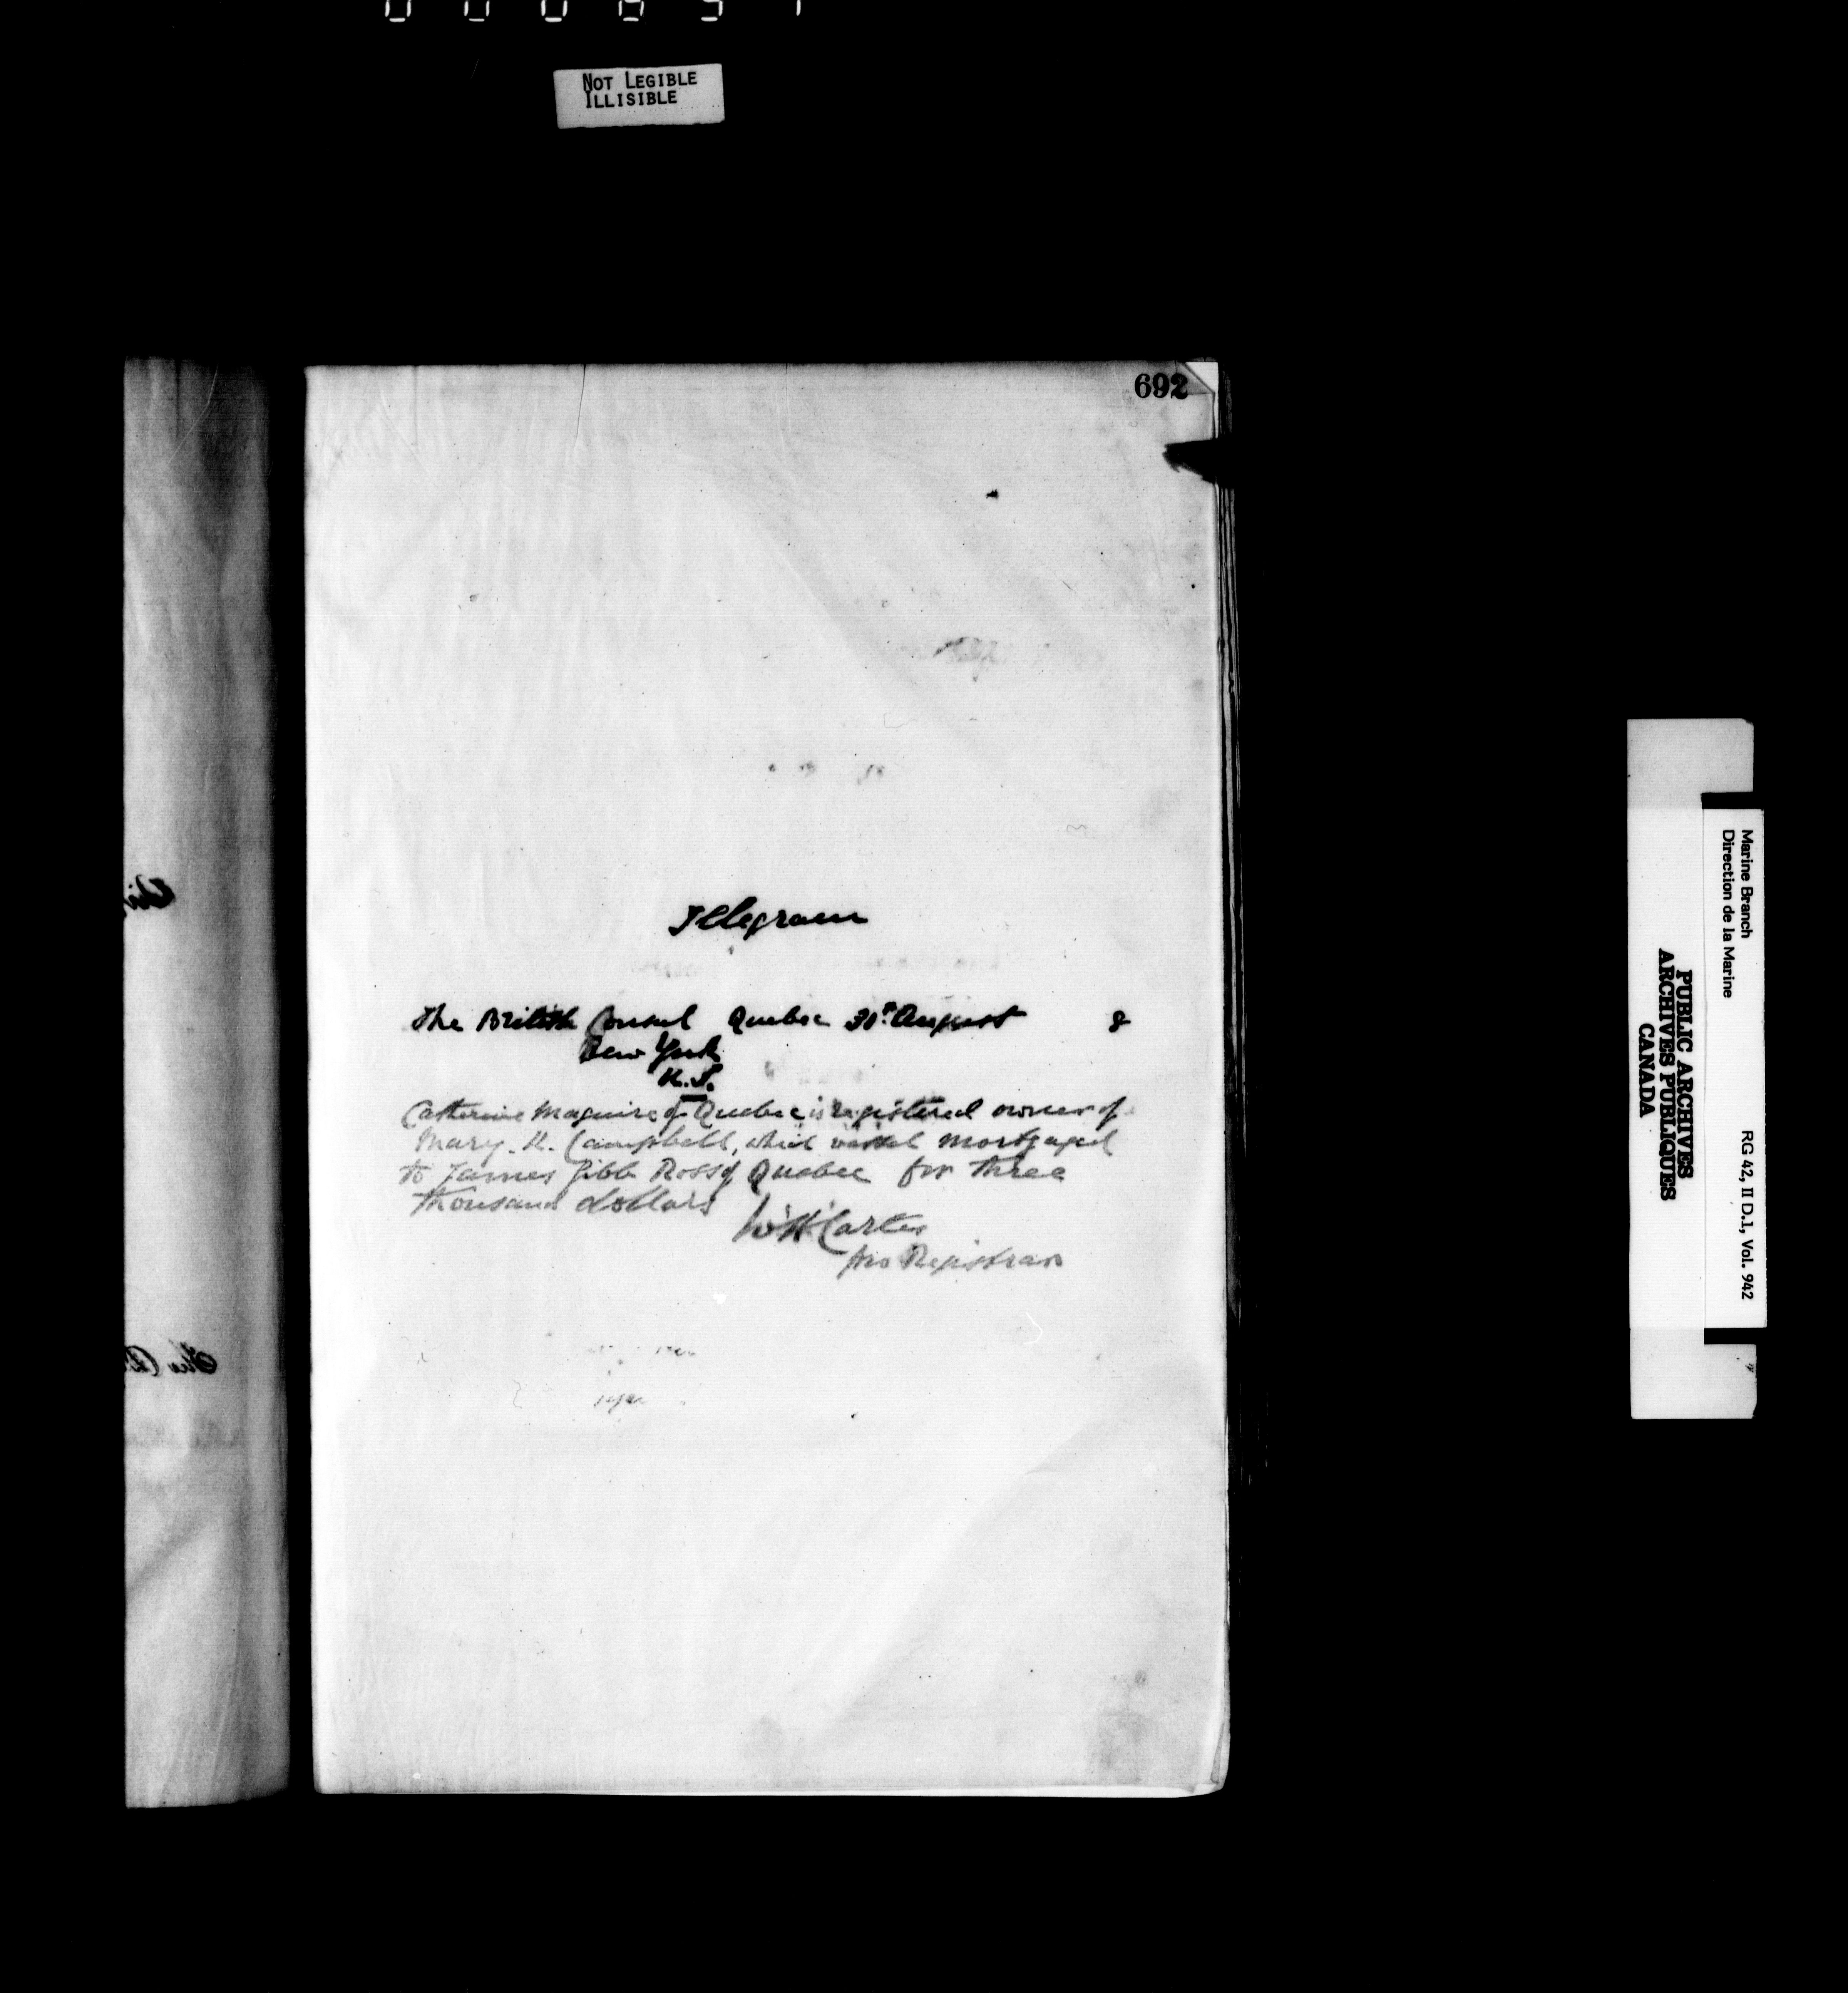 NOT LEGIBLE
ILLISIBLE
692
Telegram
The British Consul Quebec 31st August 8
New York
N.S.
Catherine Maguire of Quebec is registered owner of
Mary. K. Campbell, which vessel mortgaged
to James Gibb Ross of Quebec for three
thousand dollars
W H Carter
pro Registrar
Marine Branch
Direction de la Marine
RG 42, II D.1, Vol. 942
PUBLIC ARCHIVES
ARCHIVES PUBLIQUES
CANADA